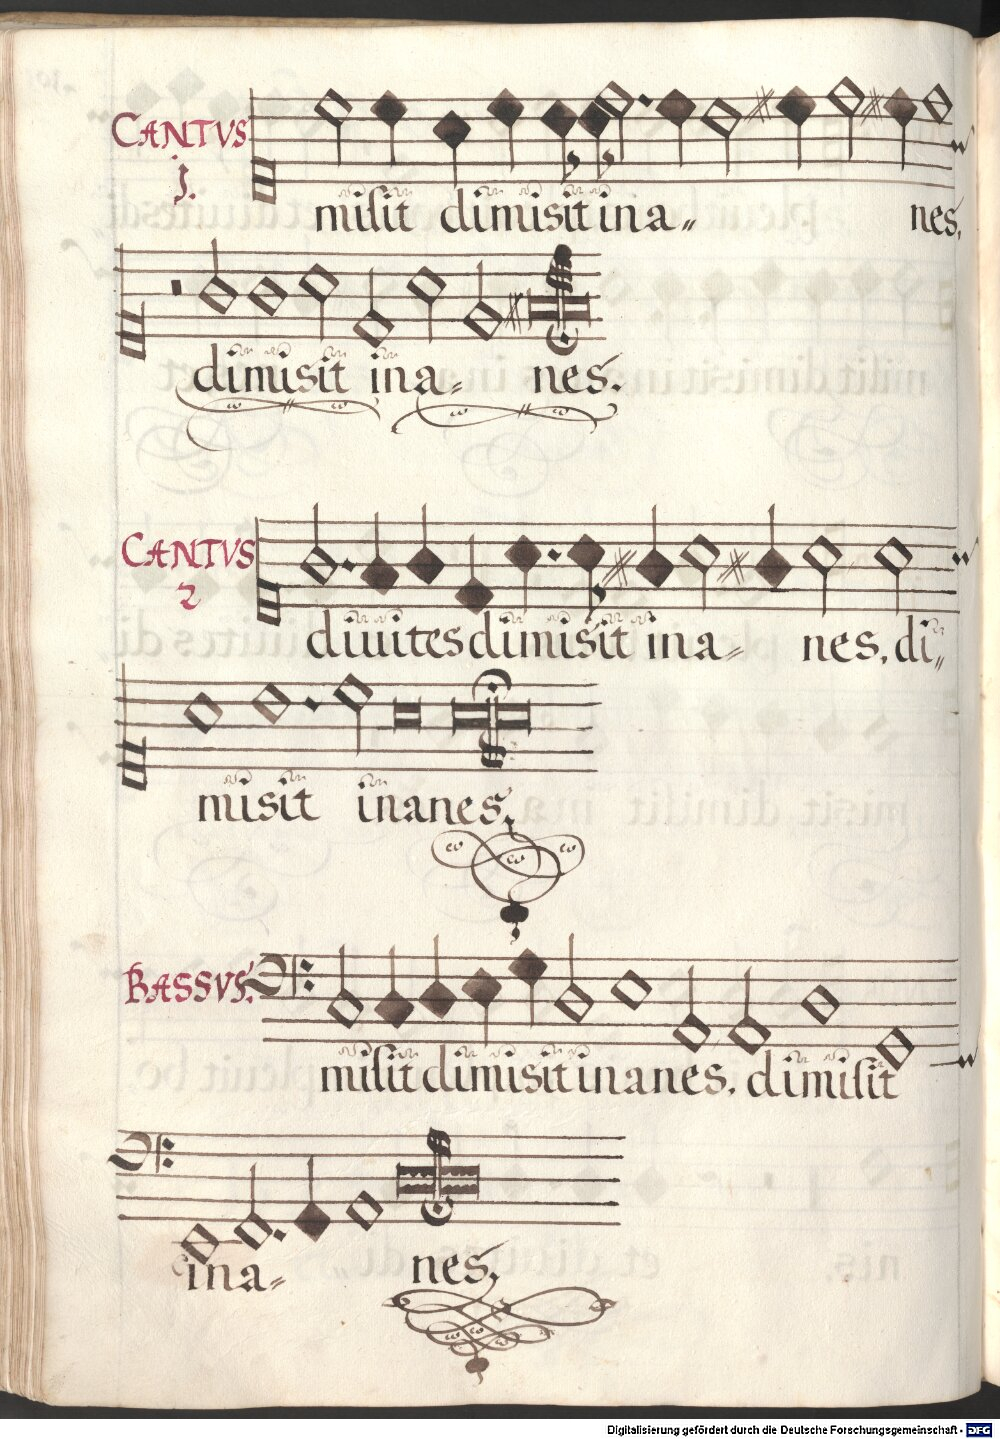 CANTVS
1.
misit dimisit in a„ nes,
dimisit in a„ nes.
CANTVS
2
diuites dimisit in a„ nes, di„
misit inanes,
BASSVS.
misit dimisit inanes. dimisit
ina„ nes,
Digitalisierung gefördert durch die Deutsche Forschungsgemeinschaft - DFG